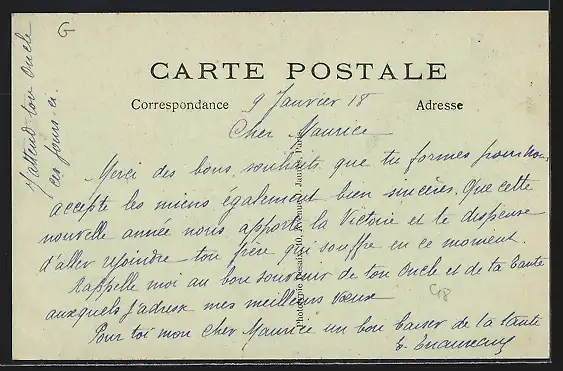 G
J'attend ton Oncle
ces jours-ci.
CARTE POSTALE
Correspondance
Adresse
9 Janvier 18
Cher Maurice
Merci des bons souhaits que tu formes pour nous
accepte les miens également bien sincères. Que cette
nouvelle année nous apporte la Victoire et te dispense
d'aller rejoindre ton frère qui souffre en ce moment.
Rappelle moi au bon souvenir de ton Oncle et de ta tante
auxquels j'adresse mes meilleurs Vœux
Pour toi mon Cher Maurice un bon baiser de ta tante
E.
Phototypie Desaix, 10, Avenue J. Jaurès, Paris
C18